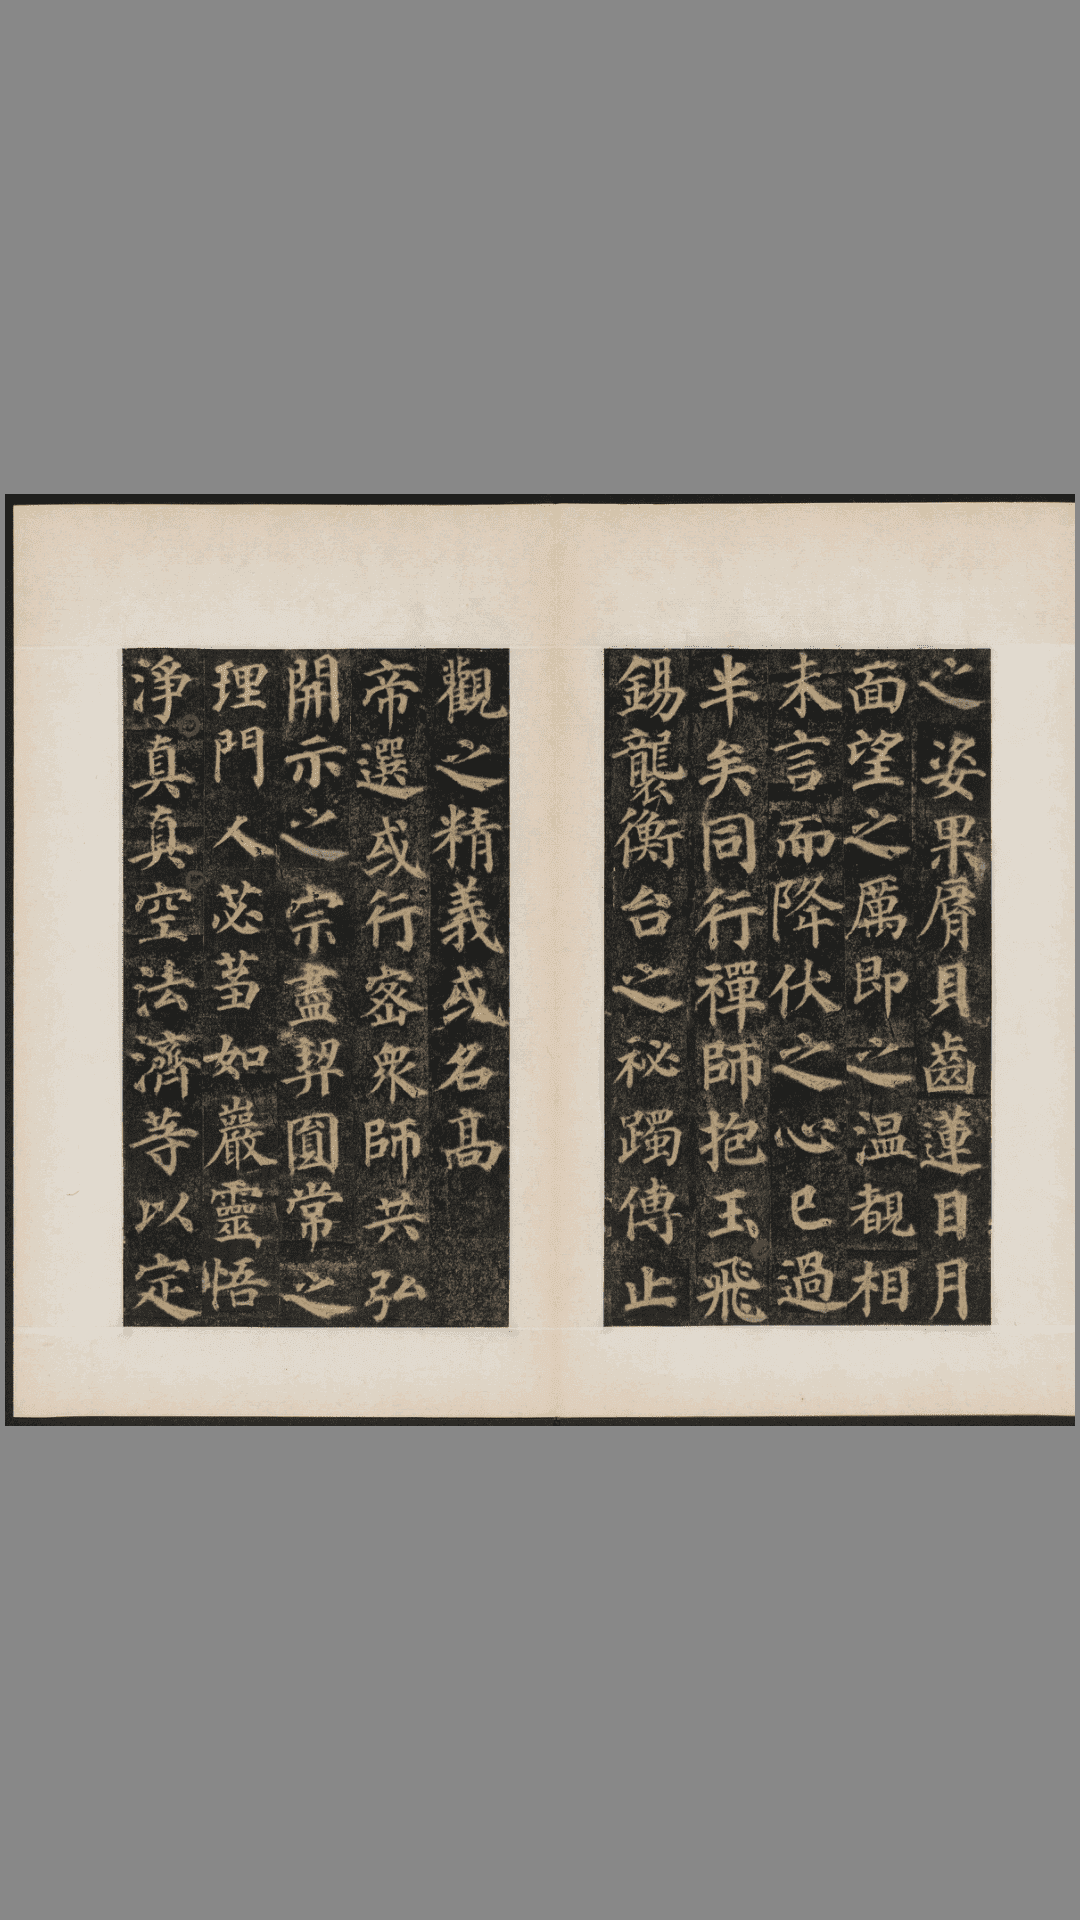 之姿果脣貝齒蓮目月
面望之厲即之温覩相
未言而降伏之心已過
半矣同行禪師抱玉飛
錫襲衡台之祕躅傳止
觀之精義或名高
帝選或行密衆師共弘
開示之宗盡契圓常之
理門人苾蒭如巖靈悟
淨真真空法濟等以定